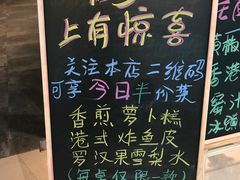 上有惊喜
关注本店二维码
可享今日半价菜
香煎萝卜糕
港式炸鱼皮
罗汉果雪梨水
(每桌仅限一款)
香港